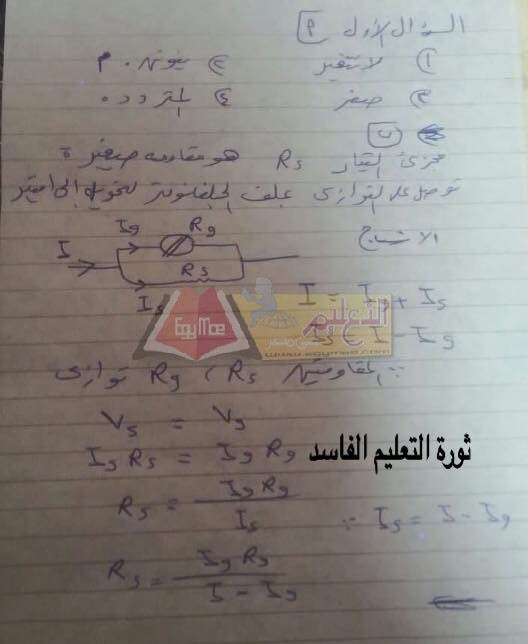 السؤال الأول أ
١) لا تتغير ٢) ينوتهر . م
٣) صفر ٤) المتردد .
ب
مجزئ التيار Rs هو مقاومة صغيرة
توصل على التوازى بملف الجلفانومتر لتحويله إلى أميتر
الاستنتاج
Ig Rg
I
Rs
Is
I = Ig + Is
Is = I - Ig
EgyMoe
التعليم
∵ المقاومتين Rg ، Rs توازى
Vs = Vg
Is Rs = Ig Rg
ثورة التعليم الفاسد
Rs = Ig Rg / Is ∵ Is = I - Ig
Rs = Ig Rg / I - Ig